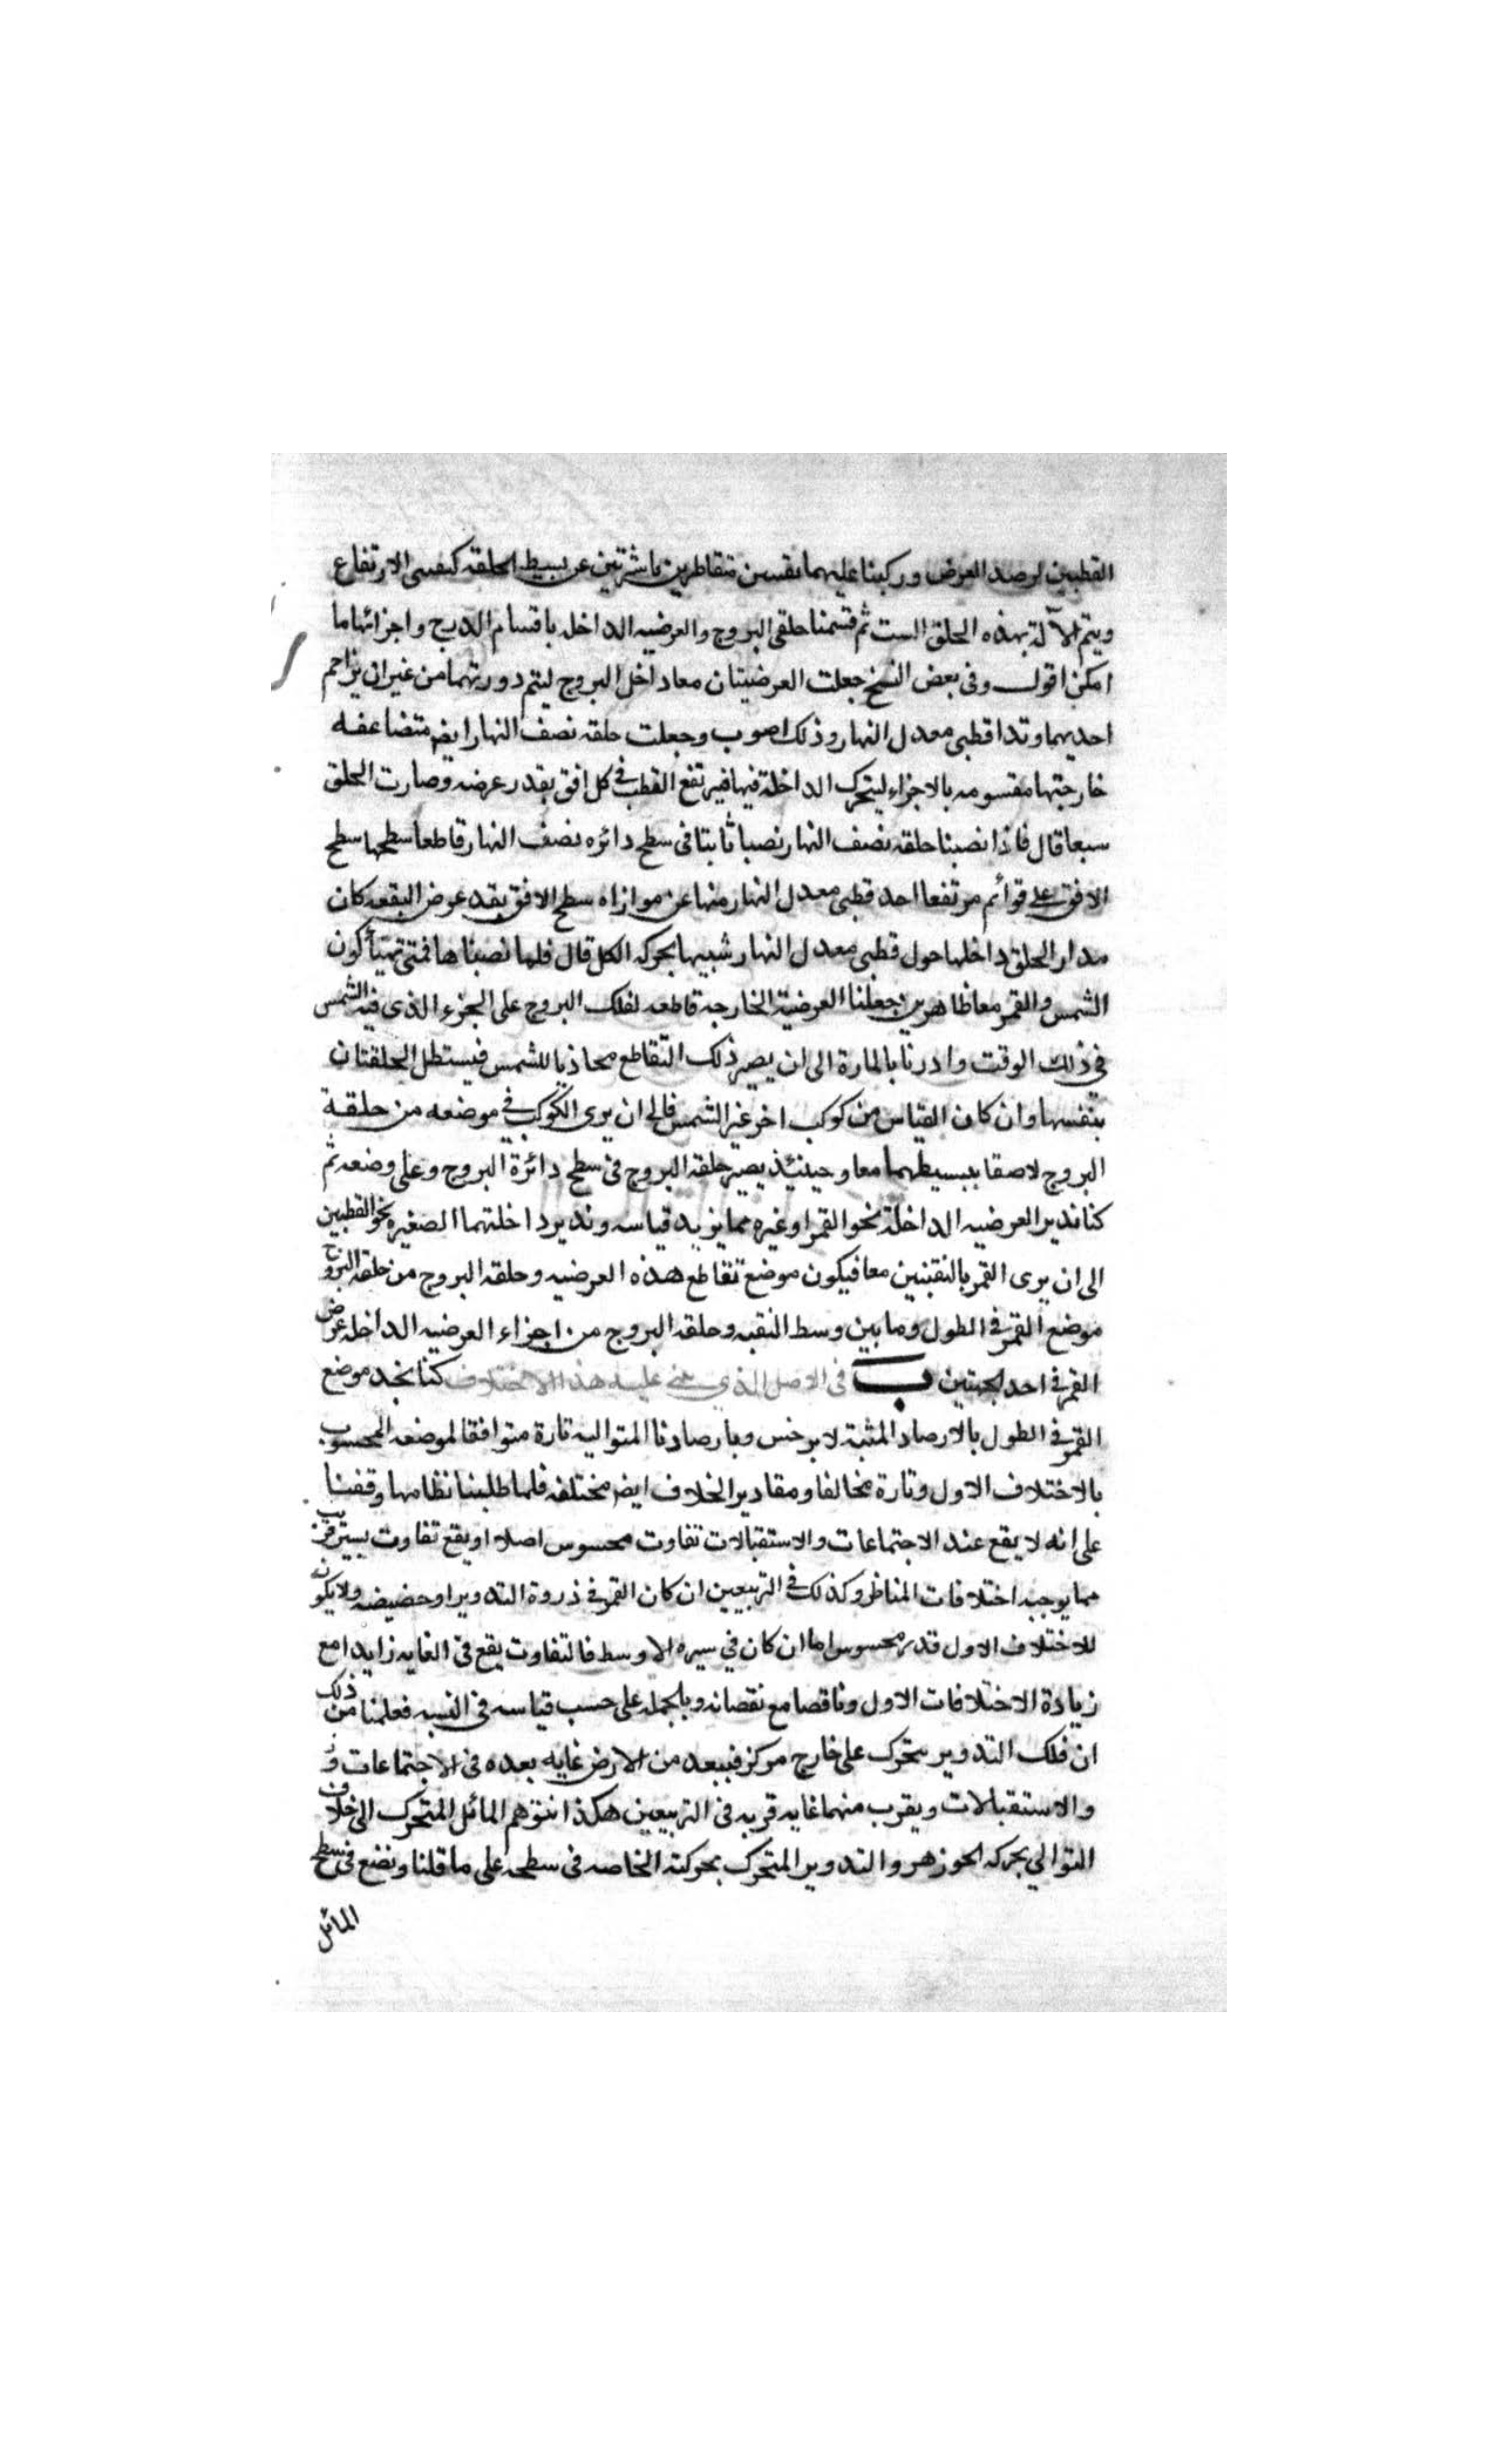 القطبين لرصد العرض وركبنا عليهما ثقبتين متقاطرين ناشزتين عن بسيط الحلقة كثقبتى الارتفاع
ويتم الآلة بهذه الحلق الست ثم قسمنا حلقى البروج والعرضيه الداخله باقسام الدرج واجزائها ما
امكن اقول وفى بعض النسخ جعلت العرضيتان معا داخل البروج ليتم دورتهما من غير ان يزاحم
احديهما وتدا قطبى معدل النهار وذلك اصوب وجعلت حلقه نصف النهار ايضا متضاعفه
خارجتها مقسومه بالاجزاء ليتحرك الداخلة فيها فيرتفع القطب فى كل افق بقدر عرضه وصارت الحلق
سبعا قال فاذا نصبنا حلقه نصف النهار نصبا ثابتا فى سطح دائره نصف النهار قاطعا سطحها سطح
الافق على قوائم مرتفعا احد قطبى معدل النهار منها عن موازاه سطح الافق بقدر عرض البقعه كان
مدار الحلق داخلها حول قطبى معدل النهار شبيها بحركه الكل قال فلما نصبناها فمتى تهيأ كون
الشمس والقمر معا ظاهرين جعلنا العرضية الخارجه قاطعه لفلك البروج على الجزء الذى فيه الشمس
فى ذلك الوقت وادرنا بالمارة الى ان يصير ذلك التقاطع محاذيا للشمس فيستظل الحلقتان
بنفسها وان كان القياس من كوكب اخر غير الشمس فالى ان يرى الكوكب فى موضعه من حلقة
البروج لاصقا ببسيطهما معا وحينئذ يصير حلقه البروج فى سطح دائرة البروج وعلى وضعه ثم
كنا ندير العرضيه الداخلة نحو القمر او غيره مما يزيد قياسه وندير داخلتهما الصغيره نحو القطبين
الى ان يرى القمر بالثقبتين معا فيكون موضع تقاطع هذه العرضيه وحلقه البروج من حلقه البروج
موضع القمر فى الطول وما بين وسط الثقبه وحلقه البروج من اجزاء العرضيه الداخله عرض
القمر فى احد الجهتين ب فى الاصل الذى عليه هذا الاختلاف كنا نجد موضع
القمر فى الطول بالارصاد المثبتة لابرخس وبارصادنا المتواليه تارة متوافقا لموضعه المحسوب
بالاختلاف الاول وتارة مخالفا ومقادير الخلاف ايضا مختلفه فلما طلبنا نظامها وقفنا
على انه لا يقع عند الاجتماعات والاستقبالات تفاوت محسوس اصلا او يقع تفاوت يسير قريب
مما يوجبه اختلافات المناظر وكذلك فى التربيعين ان كان القمر فى ذروة التدوير او حضيضه ولا يكون
للاختلاف الاول قدر محسوس اما ان كان فى سيره الاوسط فالتفاوت يقع فى الغايه زايدا مع
زيادة الاختلافات الاول وناقصا مع نقصانه وبالجمله على حسب قياسه فى النسبه فعلمنا من ذلك
ان فلك التدوير يتحرك على خارج مركز فيبعد من الارض غايه بعده فى الاجتماعات و
والاستقبالات ويقرب منهما غايه قربه فى التربيعين هكذا نتوهم المائل المتحرك الى خلاف
التوالي بحركه الجوزهر والتدوير المتحرك بحركته الخاصه فى سطحه على ما قلنا ونضع فى سطح
المائل